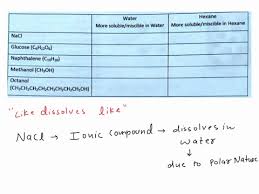 Water
More soluble/miscible in Water
Hexane
More soluble/miscible in Hexane
NaCl
Glucose (C₆H₁₂O₆)
Naphthalene (C₁₀H₈)
Methanol (CH₃OH)
Octanol
(CH₃CH₂CH₂CH₂CH₂CH₂CH₂CH₂OH)
"Like dissolves like"
NaCl → Ionic compound → dissolves in
water
↓
due to polar Nature